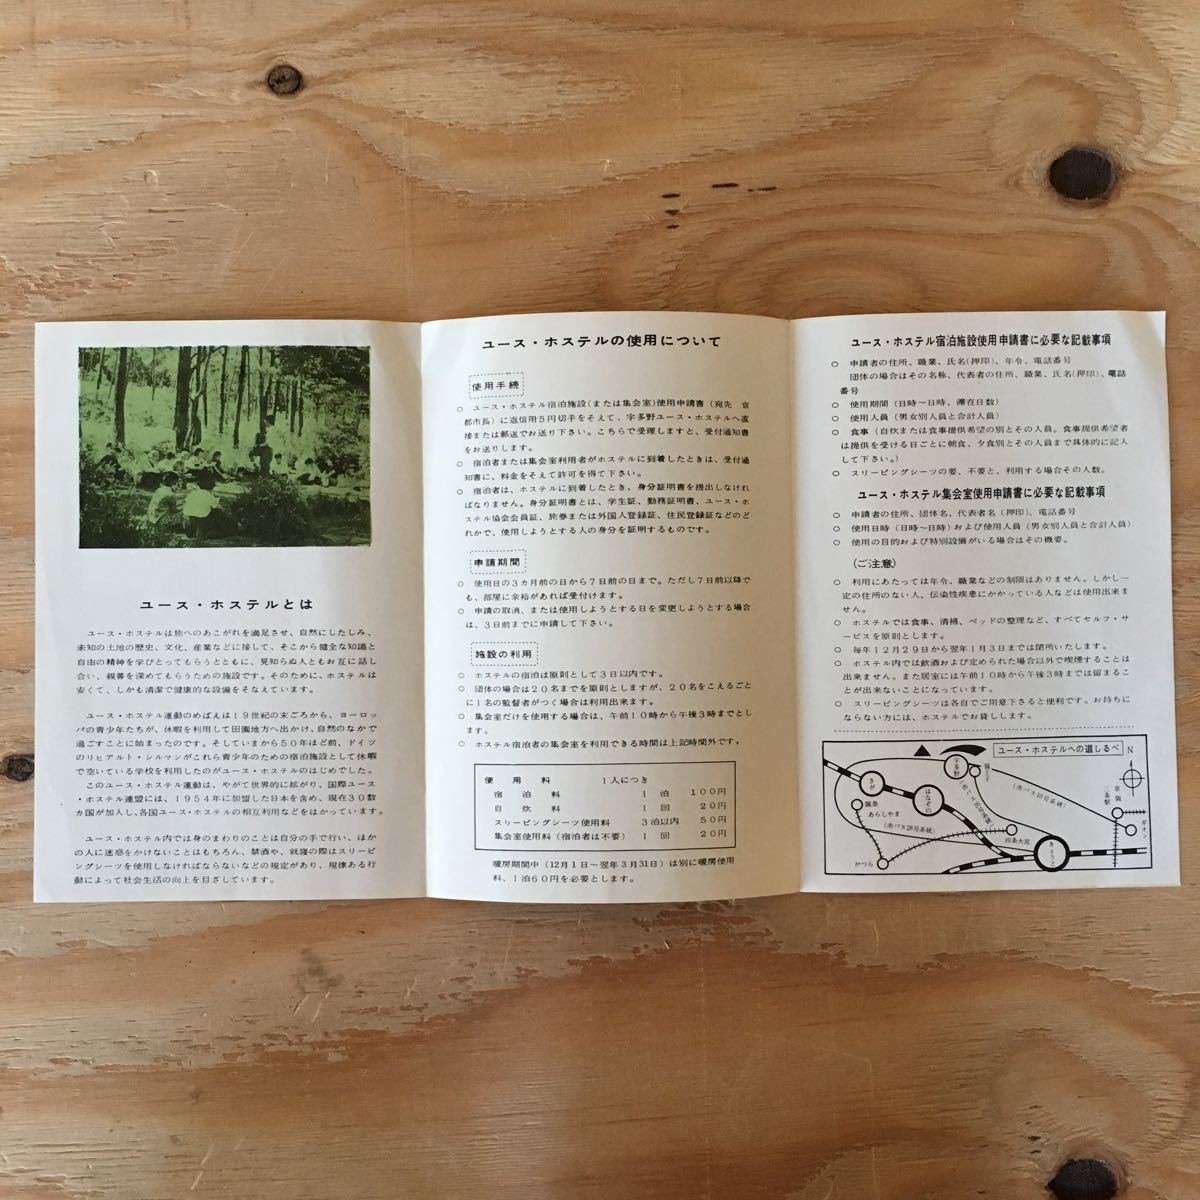 ユース・ホステルとは
ユース・ホステルは旅へのあこがれを満足させ、自然にしたしみ、
未知の土地の歴史、文化、産業などに接して、そこから健全な知識と
自由の精神を学びとってもらうとともに、見知らぬ人ともお互に話し
合い、親善を深めてもらうための施設です。そのために、ホステルは
安くて、しかも清潔で健康的な設備をそなえています。
ユース・ホステル運動のめばえは19世紀の末ごろから、ヨーロッ
パの青少年たちが、休暇を利用して田園地方へ出かけ、自然のなかで
過ごすことに始まったのです。そしていまから50年ほど前、ドイツ
のリヒアルト・シルマンがこれら青少年のための宿泊施設として休暇
で空いている学校を利用したのがユース・ホステルのはじめでした。
このユース・ホステル運動は、やがて世界的に拡がり、国際ユース
・ホステル連盟には、1954年に加盟した日本を含め、現在30数
カ国が加入し、各国ユース・ホステルの相互利用などをはかっています。
ユース・ホステル内では身のまわりのことは自分の手で行い、ほか
の人に迷惑をかけないことはもちろん、禁酒や、就寝の際はスリーピ
ングシーツを使用しなければならないなどの規定があり、規律ある行
動によって社会生活の向上を目ざしています。
ユース・ホステルの使用について
使用手続
○ ユース・ホステル宿泊施設(または集会室)使用申請書(宛先 京
都市長)に返信用5円切手をそえて、宇多野ユース・ホステルへ直
接または郵送でお送り下さい。こちらで受理しますと、受付通知書
をお送りします。
○ 宿泊者または集会室利用者がホステルに到着したときは、受付通
知書に、料金をそえて許可を得て下さい。
○ 宿泊者は、ホステルに到着したとき、身分証明書を提出しなけれ
ばなりません。身分証明書とは、学生証、勤務証明書、ユース・ホ
ステル協会会員証、旅券または外国人登録証、住民登録証などのど
れかで、使用しようとする人の身分を証明するものです。
申請期間
○ 使用日の3カ月前の日から7日前の日まで。ただし7日前以降で
も、部屋に余裕があれば受付けます。
○ 申請の取消、または使用しようとする日を変更しようとする場合
は、3日前までに申請して下さい。
施設の利用
○ ホステルの宿泊は原則として3日以内です。
○ 団体の場合は20名までを原則としますが、20名をこえるごと
に1名の監督者がつく場合は利用出来ます。
○ 集会室だけを使用する場合は、午前10時から午後3時までとし
ます。
○ ホステル宿泊者の集会室を利用できる時間は上記時間外です。
使用料 1人につき
宿泊料 1泊 100円
自炊料 1回 20円
スリーピングシーツ使用料 3泊以内 50円
集会室使用料(宿泊者は不要) 1回 20円
暖房期間中(12月1日～翌年3月31日)は別に暖房使用
料、1泊60円を必要とします。
ユース・ホステル宿泊施設使用申請書に必要な記載事項
○ 申請者の住所、職業、氏名(押印)、年令、電話番号
団体の場合はその名称、代表者の住所、職業、氏名(押印)、電話
番号
○ 使用期間(日時～日時、滞在日数)
○ 使用人員(男女別人員と合計人員)
○ 食事(自炊または食事提供希望の別とその人員。食事提供希望者
は提供を受ける日ごとに朝食、夕食別とその人員まで具体的に記入
して下さい。)
○ スリーピングシーツの要、不要と、利用する場合その人数。
ユース・ホステル集会室使用申請書に必要な記載事項
○ 申請者の住所、団体名、代表者名(押印)、電話番号
○ 使用日時(日時～日時)および使用人員(男女別人員と合計人員)
○ 使用の目的および特別設備がいる場合はその概要。
(ご注意)
○ 利用にあたっては年令、職業などの制限はありません。しかし一
定の住所のない人、伝染性疾患にかかっている人などは使用出来ま
せん。
○ ホステルでは食事、清掃、ベッドの整理など、すべてセルフ・サ
ービスを原則とします。
○ 毎年12月29日から翌年1月3日までは閉所いたします。
○ ホステル内では飲酒および定められた場合以外で喫煙することは
出来ません。また居室には午前10時から午後3時までは留まるこ
とが出来ないことになっています。
○ スリーピングシーツは各自でご用意下さると便利です。お持ちに
ならない方には、ホステルでお貸しします。
ユース・ホステルへの道しるべ
N
さが
宇多野
はなぞの
福王子
(市バス10月系統)
京阪
三条駅
嵐急
あらしやま
(市バス28月系統)
四条大宮
ギオン
かつら
きょうと